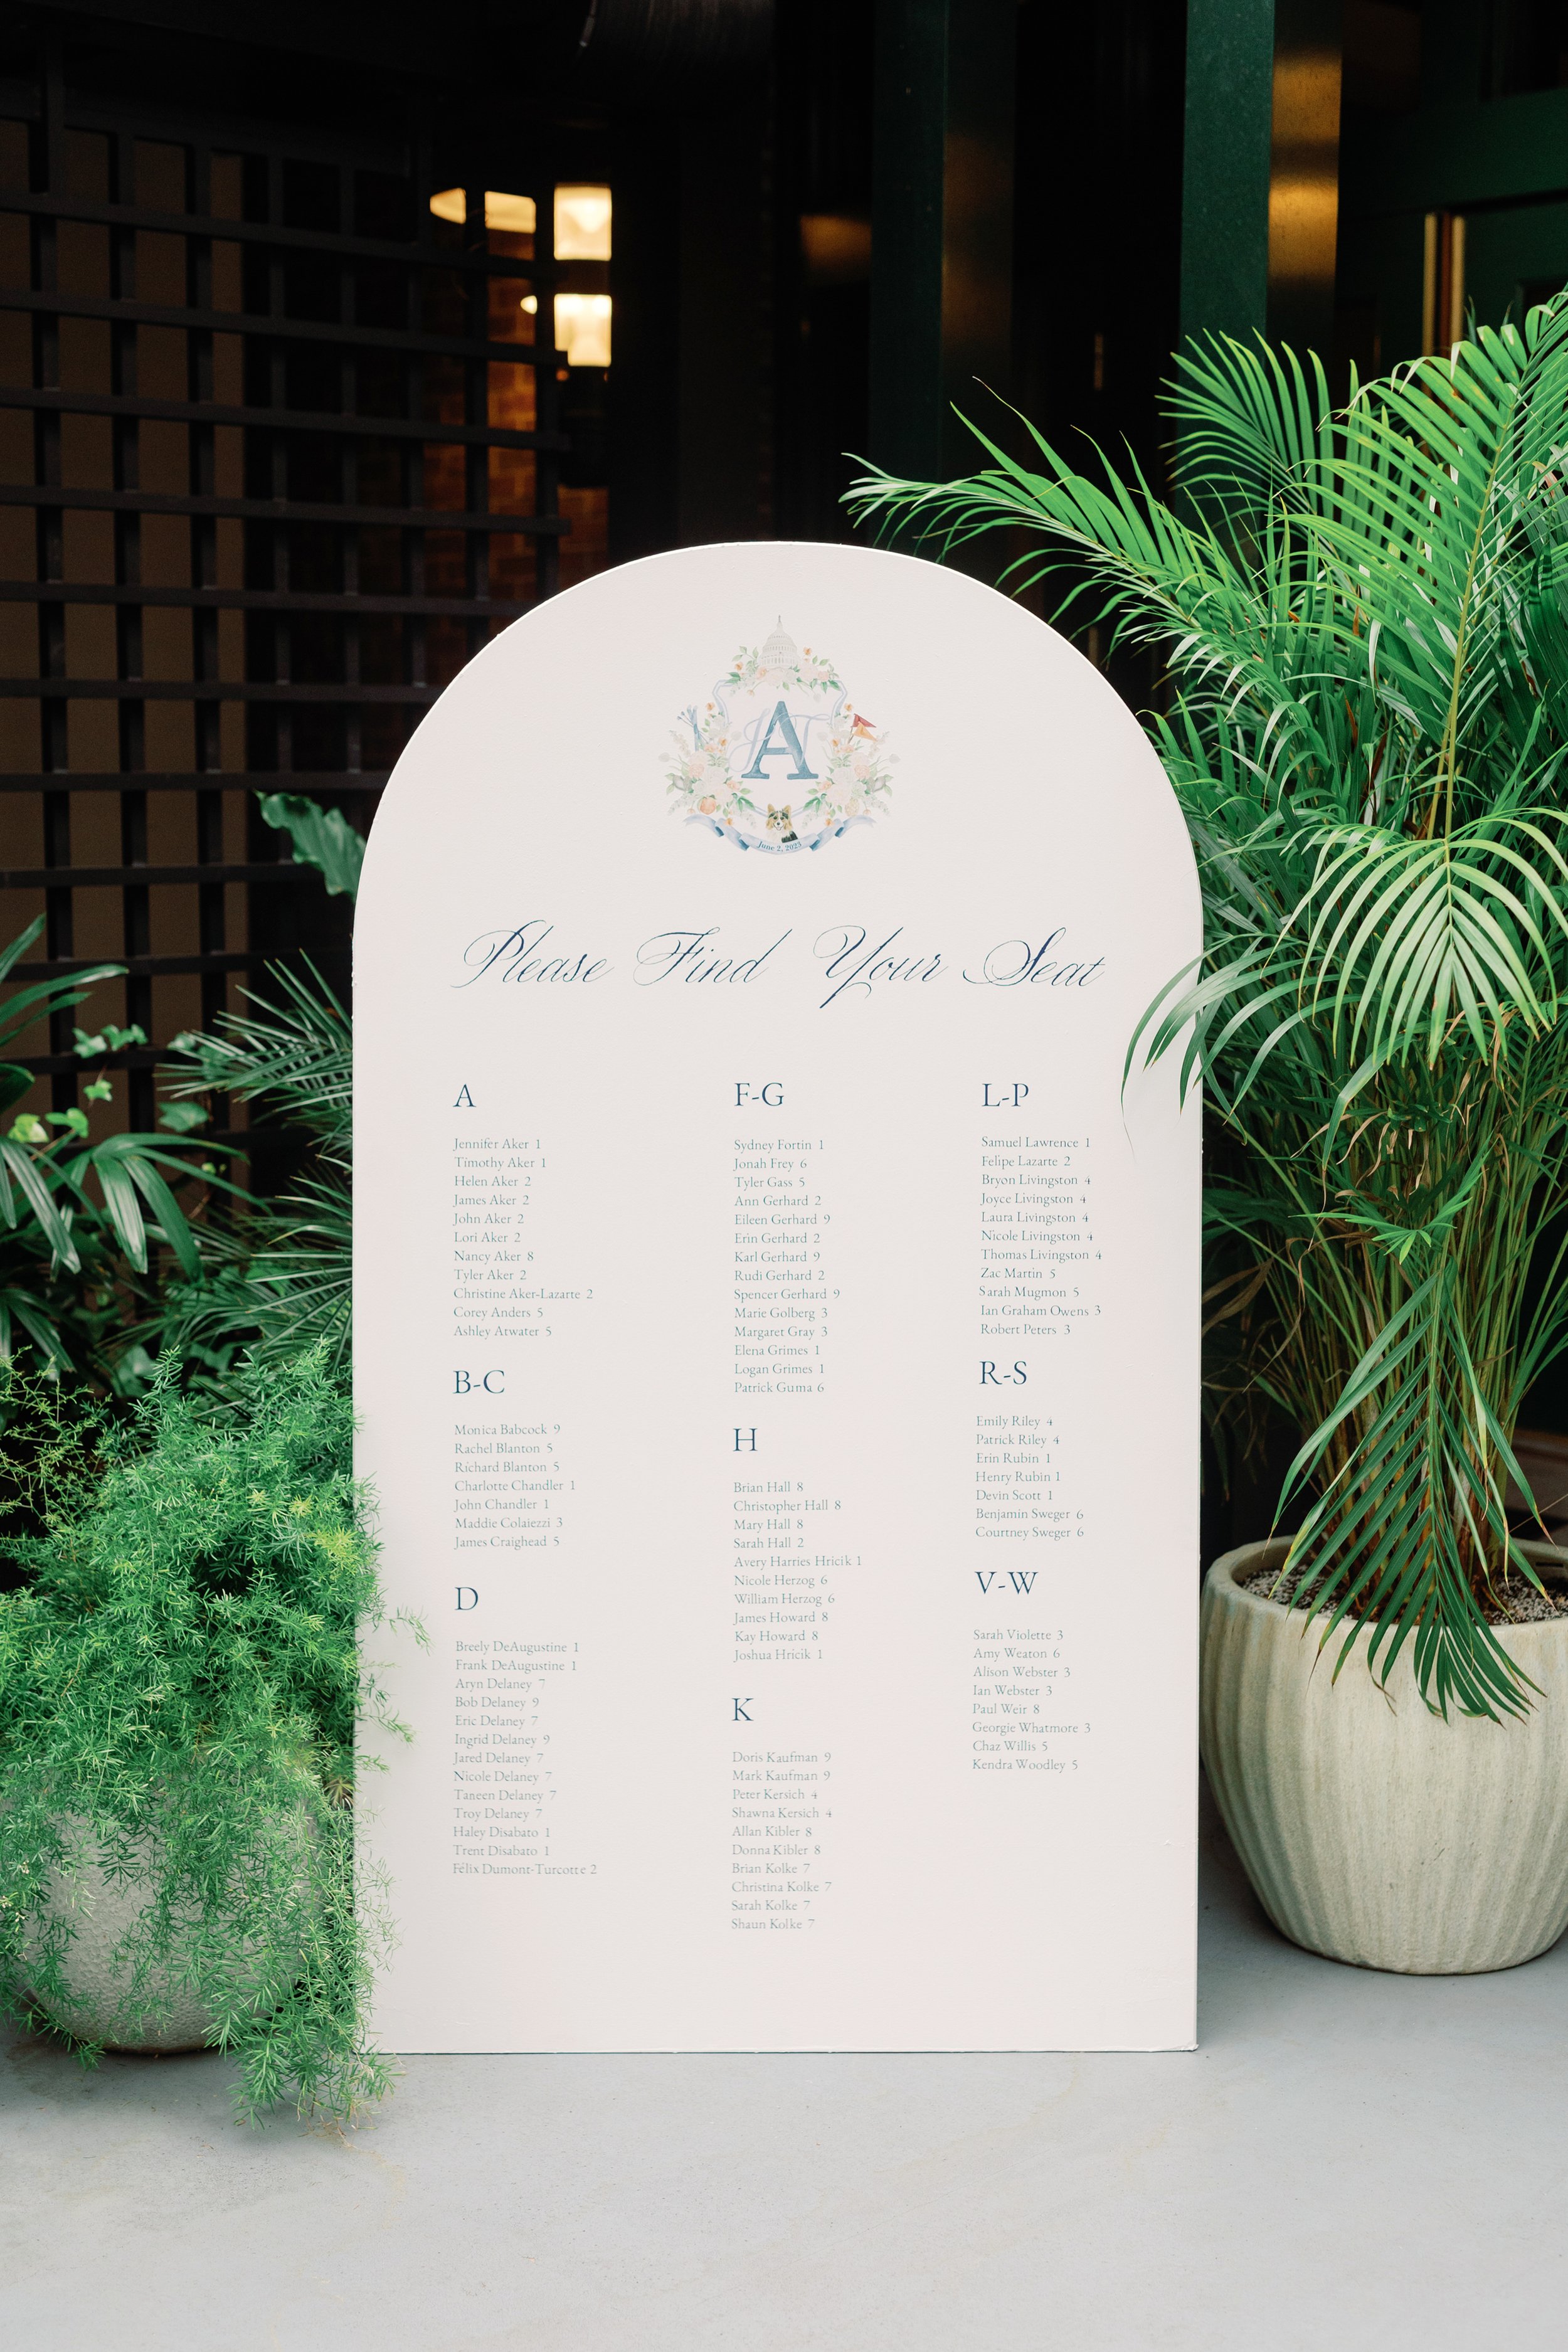 A
June 2, 2023
Please Find Your Seat
A
Jennifer Aker 1
Timothy Aker 1
Helen Aker 2
James Aker 2
John Aker 2
Lori Aker 2
Nancy Aker 8
Tyler Aker 2
Christine Aker-Lazarte 2
Corey Anders 5
Ashley Atwater 5
B-C
Monica Babcock 9
Rachel Blanton 5
Richard Blanton 5
Charlotte Chandler 1
John Chandler 1
Maddie Colaiezzi 3
James Craighead 5
D
Breely DeAugustine 1
Frank DeAugustine 1
Aryn Delaney 7
Bob Delaney 9
Eric Delaney 7
Ingrid Delaney 9
Jared Delaney 7
Nicole Delaney 7
Taneen Delaney 7
Troy Delaney 7
Haley Disabato 1
Trent Disabato 1
Félix Dumont-Turcotte 2
F-G
Sydney Fortin 1
Jonah Frey 6
Tyler Gass 5
Ann Gerhard 2
Eileen Gerhard 9
Erin Gerhard 2
Karl Gerhard 9
Rudi Gerhard 2
Spencer Gerhard 9
Marie Golberg 3
Margaret Gray 3
Elena Grimes 1
Logan Grimes 1
Patrick Guma 6
H
Brian Hall 8
Christopher Hall 8
Mary Hall 8
Sarah Hall 2
Avery Harries Hricik 1
Nicole Herzog 6
William Herzog 6
James Howard 8
Kay Howard 8
Joshua Hricik 1
K
Doris Kaufman 9
Mark Kaufman 9
Peter Kersich 4
Shawna Kersich 4
Allan Kibler 8
Donna Kibler 8
Brian Kolke 7
Christina Kolke 7
Sarah Kolke 7
Shaun Kolke 7
L-P
Samuel Lawrence 1
Felipe Lazarte 2
Bryon Livingston 4
Joyce Livingston 4
Laura Livingston 4
Nicole Livingston 4
Thomas Livingston 4
Zac Martin 5
Sarah Mugmon 5
Ian Graham Owens 3
Robert Peters 3
R-S
Emily Riley 4
Patrick Riley 4
Erin Rubin 1
Henry Rubin 1
Devin Scott 1
Benjamin Sweger 6
Courtney Sweger 6
V-W
Sarah Violette 3
Amy Weaton 6
Alison Webster 3
Ian Webster 3
Paul Weir 8
Georgie Whatmore 3
Chaz Willis 5
Kendra Woodley 5